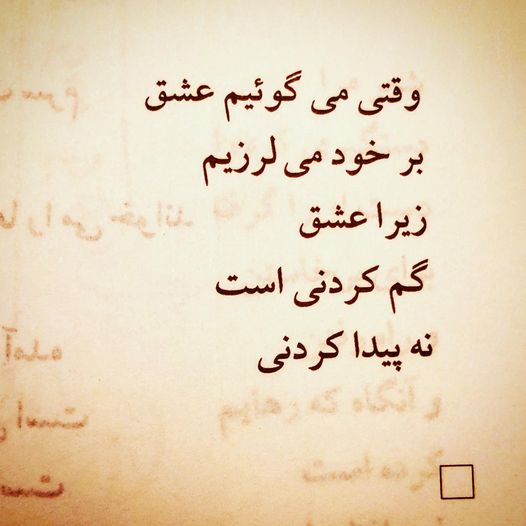 وقتی می گوئیم عشق
بر خود می لرزیم
زیرا عشق
گم کردنی است
نه پیدا کردنی